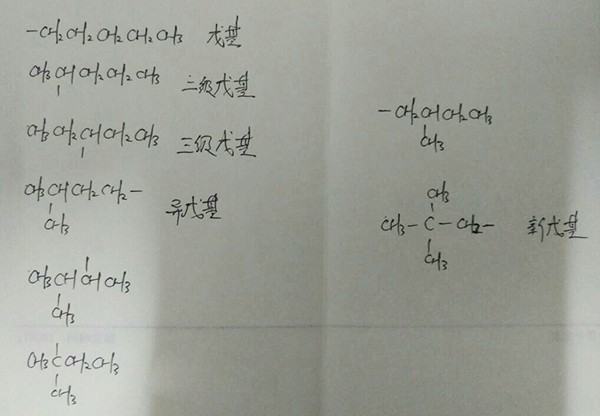 -CH2CH2CH2CH2CH3 戊基
CH3CHCH2CH2CH3 二级戊基
CH3CH2CHCH2CH3 三级戊基
CH3CHCH2CH2- 异戊基
CH3
CH3CHCHCH3
CH3
CH3CCH2CH3
CH3
-CH2CHCH2CH3
CH3
CH3
CH3-C-CH2- 新戊基
CH3